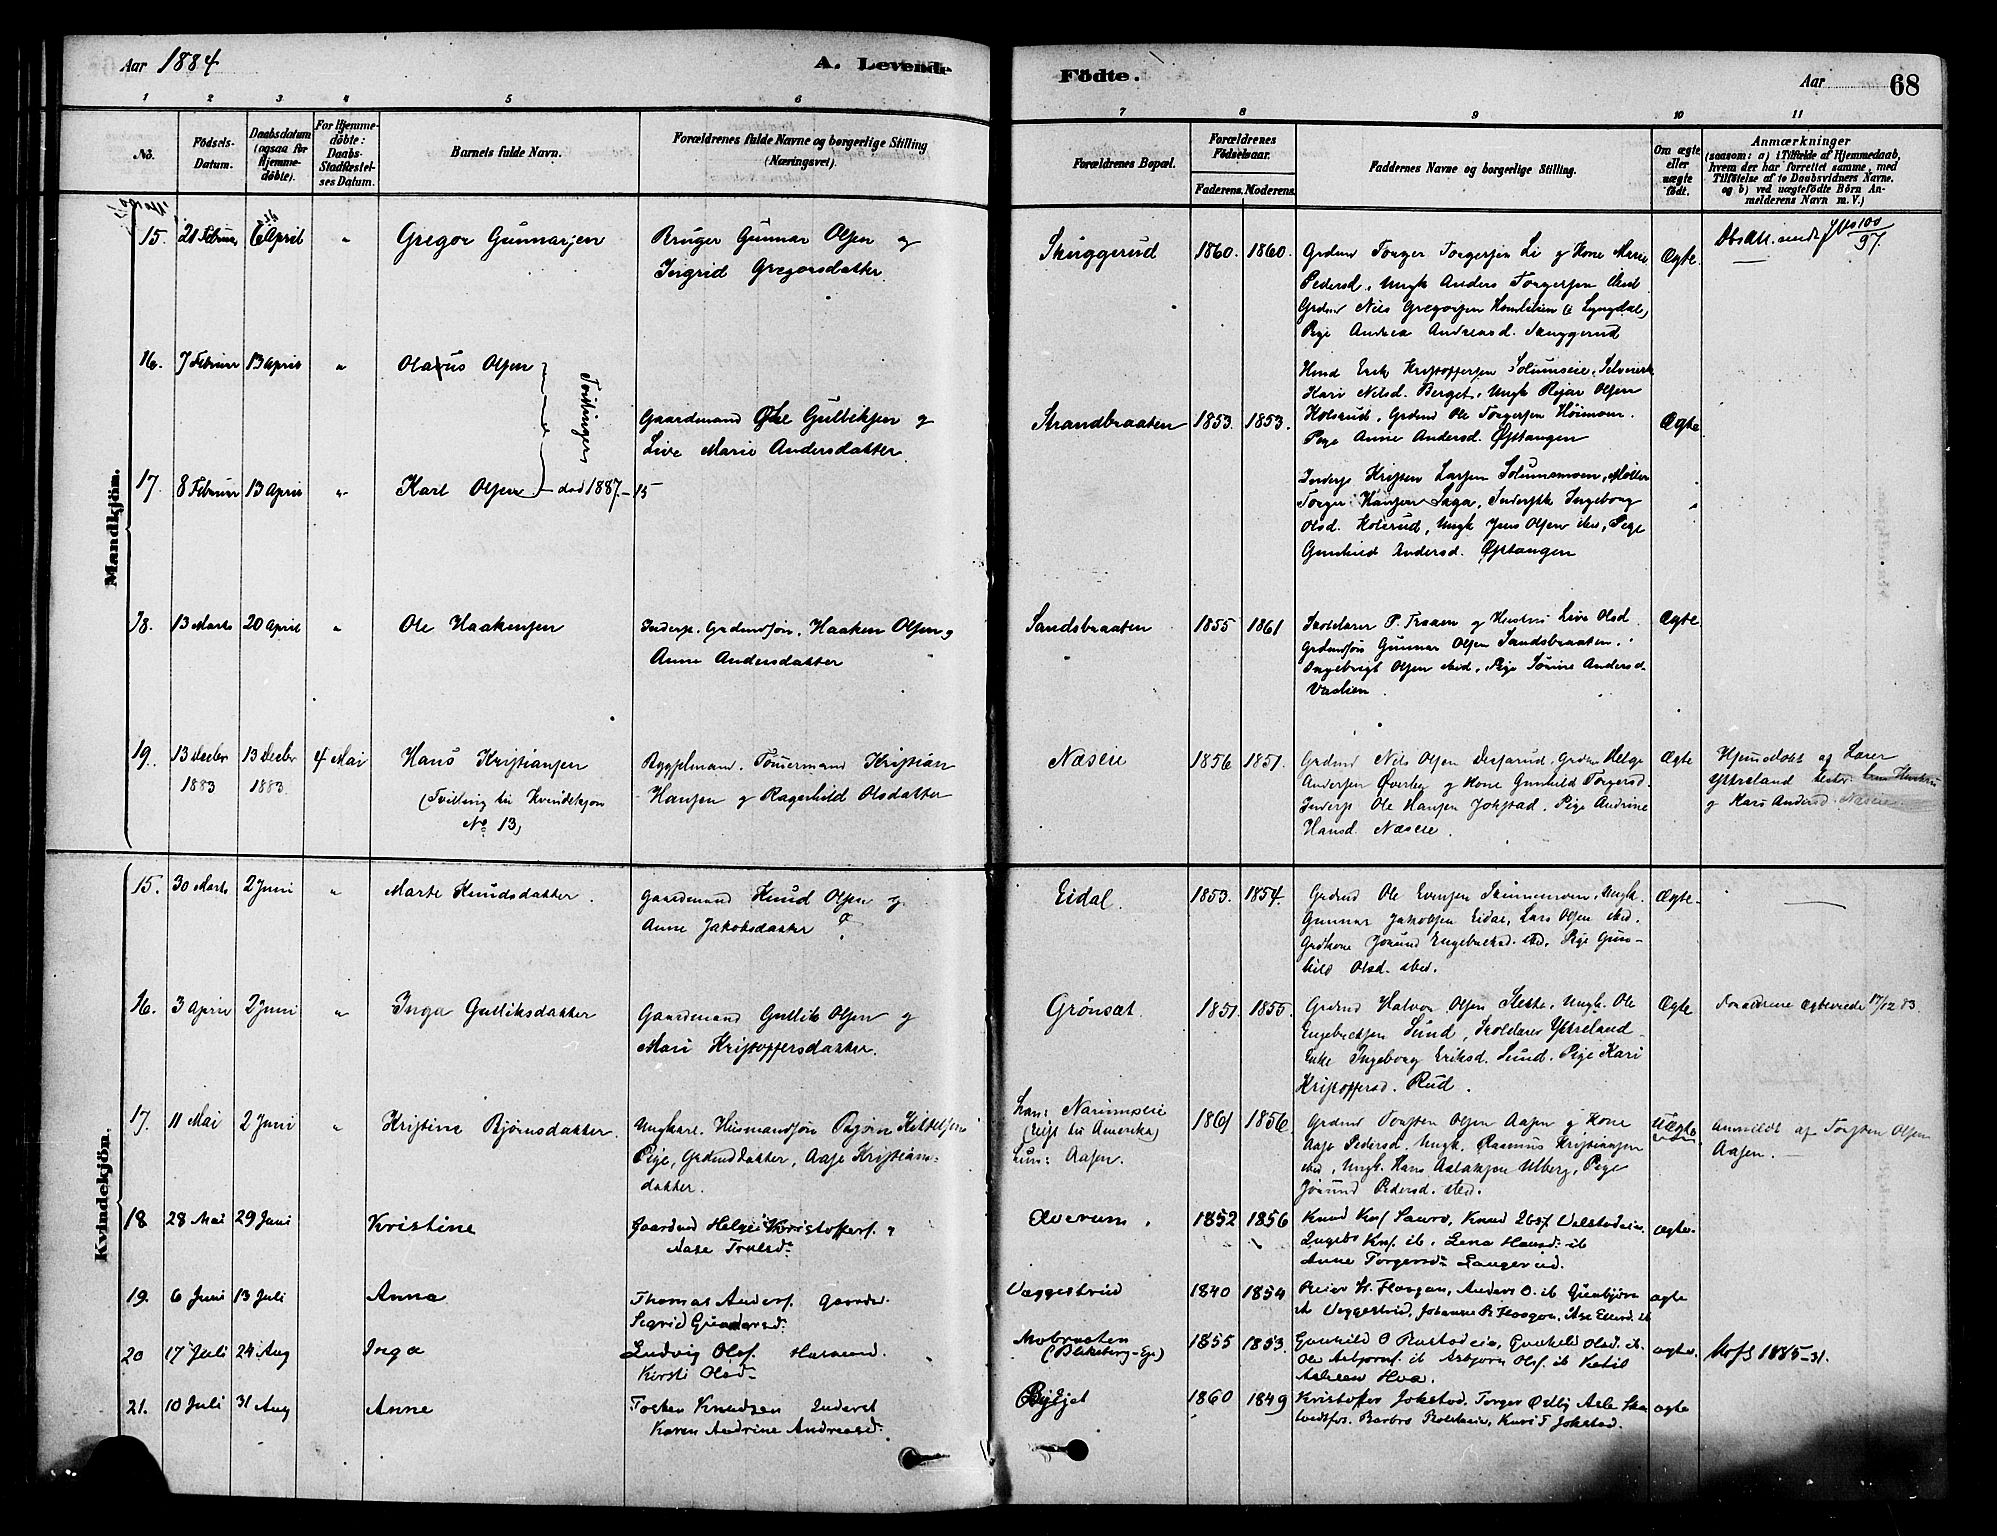 Aar 1884
A. Levende
Födte.
Aar
68
1 2 3 4 5 6 7 8 9 10 11
No.
Födsels-
Datum.
Daabsdatum
(ogsaa for
Hjemme-
döbte).
For Hjemme-
döbte:
Daabs-
Stadfæstel-
ses Datum.
Barnets fulde Navn.
Forældrenes fulde Navne og borgerlige Stilling
(Næringsvei).
Forældrenes Bopæl.
Forældrenes
Födselsaar.
Faderens. Moderens.
Faddernes Navne og borgerlige Stilling.
Om ægte
eller
uægte
födt.
Anmærkninger
(saasom: a) i Tilfælde af Hjemmedaab,
hvem der har forrettet samme, med
Tilföielse af to Daabsvidners Navne,
og b) ved uægtefödte Börn An-
melderens Navn m. V.)
Mandkjön.
15. 21 Februar 6 April " Gregor Gunnarsen
Bruger Gunnar Olsen og
Ingrid Gregorsdatter
Skuggerud 1860. 1860.
Grdmd Torger Torgersen Li og Kone Marie
Pedersd., Ungk Anders Torgersen
Grdmd Nils Gregorsen Homlelien (i Lyngdal)
Pige Andrea Andreasd. Skuggerud
Ægte.
100/97
16. 7 Februar 13 April " Olaus Olsen
Tvillinger
Gaardmand Ole Gulliksen og
Live Marie Andersdatter
Strandbraaten 1853. 1853.
Hmd Erik Kristoffersen Solumseie,
Kari Nilsd. Berget, Ungk Rejar Olsen
Kolsrud, Grdmd Ole Torgersen Höimoen.
Pige Anne Andersd. Øptangen
Ægte
17. 8 Februar 13 April " Karl Olsen död 1887-15
Inderst Kristen Larsen Solumsmoen, Möller
Torger Hansen Laga, Ingeborg
Olsd. Kolsrud, Ungk Jens Olsen ibd, Pige
Gunhild Andersd. Øptangen
"
18. 13 Marts 20 April " Ole Haakensen
Inderst. Grdmdsön. Haaken Olsen og
Anne Andersdatter
Sandsbraaten 1855 1861
Skolelærer P. Traaen og Hustru Live Olsd.
Grdmdsön Gunnar Olsen Sandsbraaten.
Ingebrigt Olsen sted, Pige Andersd.
Ægte
19. 13 Decbr 13 Decbr 4 Mai Hans Kristiansen
1883 1883
(Tvilling til Kvindekjön
No 13)
Tömmermand Kristian
Hansen og Ragnhild Olsdatter
Næseie 1856 1851.
Grdmd Nils Olsen, Grdmd Helge
Andersen Øverby og Kone Gunhild Torgersd.
Inderst Ole Hansen Jokstad, Pige Andrine
Hansd. Næseie.
Ægte
Hjemmedöbt af Lærer
Ytteland
og Kari Andersd. Næseie
Kvindekjön.
15. 30 Marts 2 Juni " Marte Knudsdatter.
Gaardmand Knud Olsen og
Anne Jakobsdatter
Eidal. 1853. 1854.
Grdmd Ole Evensen Skinnemoen, Ungk.
Gunnar Jakobsen Eidal, Lars Olsen sted.
Grdkone Jörund Engebretsd. sted, Pige Gun-
hild Olsd. sted.
Ægte.
16. 3 April 2 Juni " Inga Gulliksdatter
Gaardmand Gullik Olsen og
Mari Kristoffersdatter.
Grönset. 1851. 1855.
Grdmd Halvor Olsen Slette, Ungk. Ole
Engebretsen Sund, Skolelærer Ytteland
Enke Ingeborg Eriksd. Sund. Pige Kari
Kristoffersd. Rud.
Ægte
Forældrene ægteviede 17/12 83.
17. 11 Mai 2 Juni " Kristine Björnsdatter.
Ungkarl. Husmandsön Björn Kittelsen
Pige, Grdmdsdatter, Aase Kristians-
datter.
han: Narumseie
(reist til Amerika)
hun: Aasen.
1861 1856
Grdmd Torsten Olsen Aasen og Kone
Aase Pedersd. Ungk. Rasmus Kristiansen
sted, Ungk. Hans Aslaksen Ulberg, Pige
Jörund Pedersd. sted.
Uægte
Anmeldt af Torsten Olsen
Aasen.
18 28 Mai 29 Juni Kristine
Gaardmd Helge Kristoffers.
Aase Trulsd.
Averum. 1852 1856
Knud Ks. Saure, Knud
Ingebr. Kns. ib. Lena Hansd. ib
Anne Torgersd. Langerud.
ægte.
19. 6 Juni 13 Juli Anna
Thomas Anders. Gaardm.
Sigrid Gunnarsd.
Væggestrud 1840 1854
Reier H. Floagan, Anders O. ib
Væggestrud, Johanne R. Floagan,
ægte
20 17 Juli 24 Aug Inga
Ludvig Ols. Husmand.
Kirsti Olsd.
Mobraaten
(Blikeberg-Eje)
1855 1853.
Gunhild O Rustadeia, Gunhild Olsd. ib.
Ole Asbjörns. ib Asbjörn Ols. ib
ægte.
1885-31.
21. 10 Juli 31 Aug Anne
Tosten Knudsen Inderst
Karen Andrine Andreasd.
1860 1849
Kristoffer Jokstad, Torger Østby
Barbro, Kari T Jokstad.
ægte